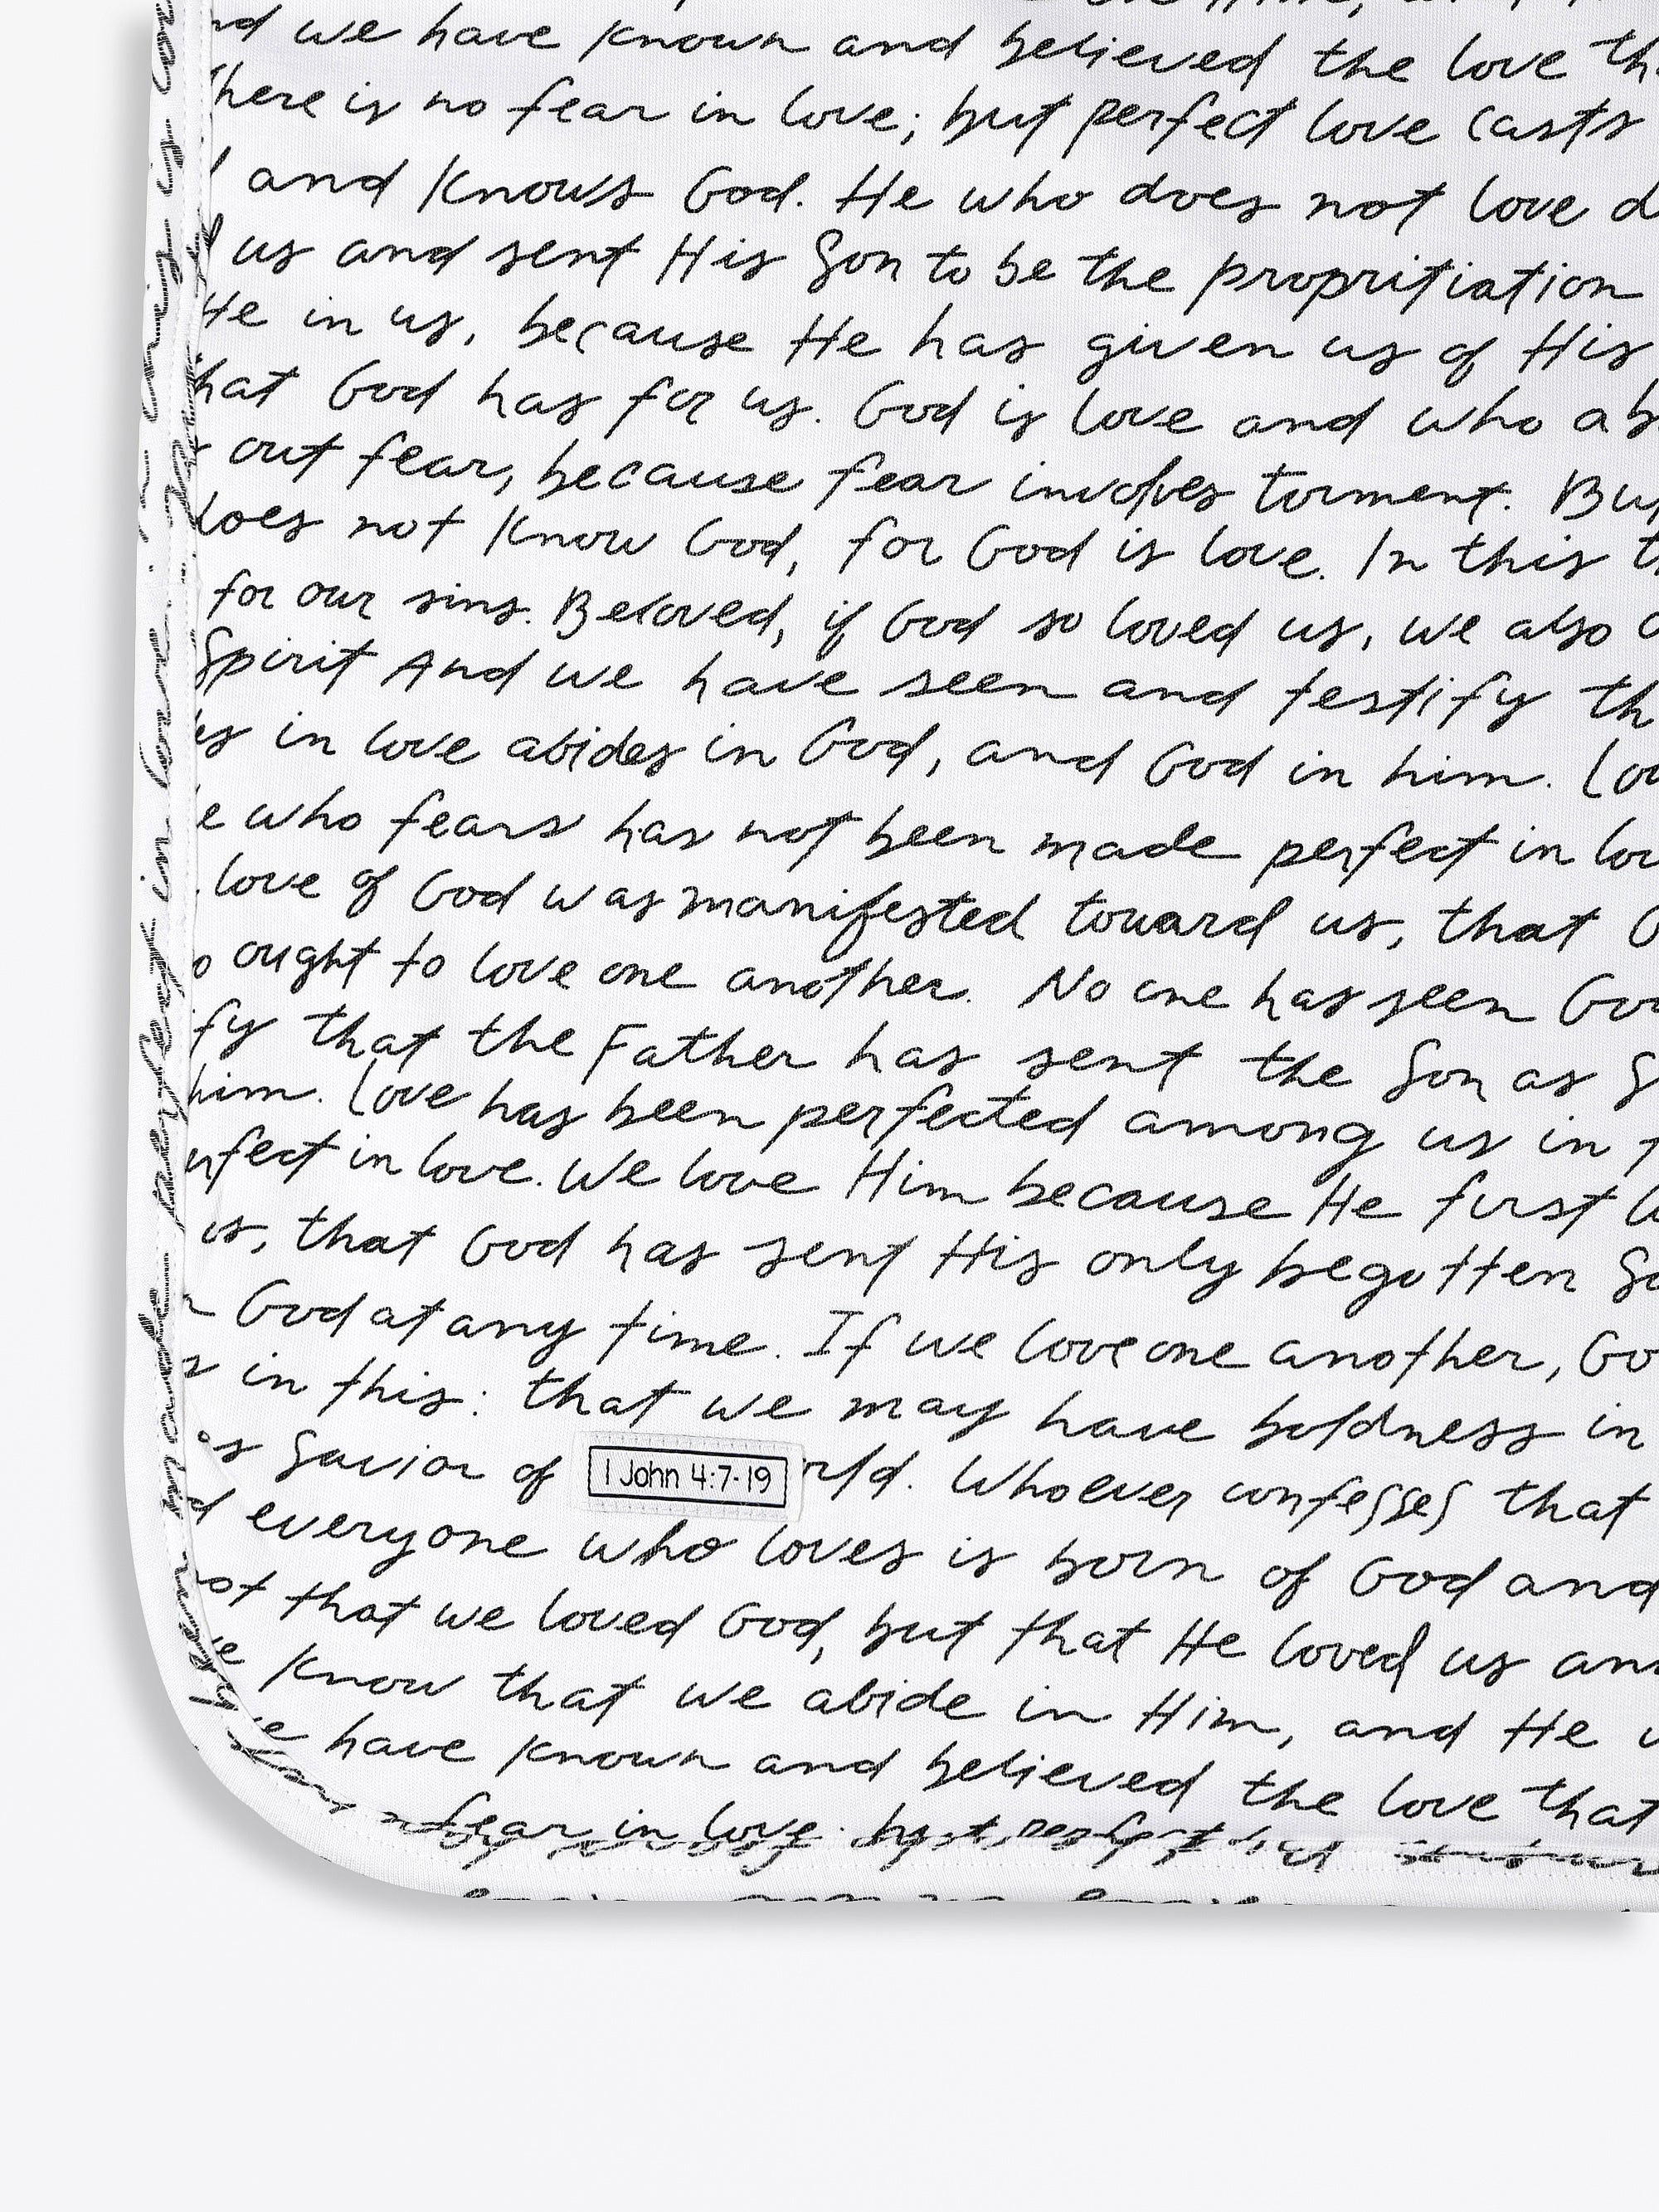 we have known and believed the love
here is no fear in love; but perfect love casts
and knows God. He who does not love d
us and sent His Son to be the propritiation
He in us, because He has given us of His
hat God has for us. God is love and who ab
out fear, because fear involves torment. Bu
does not know God, for God is love. In this t
for our sins. Beloved, if God so loved us, we also
Spirit And we have seen and testify th
es in love abides in God, and God in him. Lov
e who fears has not been made perfect in lov
love of God was manifested toward us, that G
o ought to love one another. No one has seen God
fy that the Father has sent the Son as S
him. Love has been perfected among us in
rfect in love. We love Him because He first l
us, that God has sent His only begotten So
n God at any time. If we love one another, Go
s in this: that we may have boldness in
as Savior of
1 John 4:7-19
rld. Whoever confesses that
d everyone who loves is born of God and
ot that we loved God, but that He loved us and
we know that we abide in Him, and He
we have known and believed the love that
fear in love. but perfect
made perfect in love.